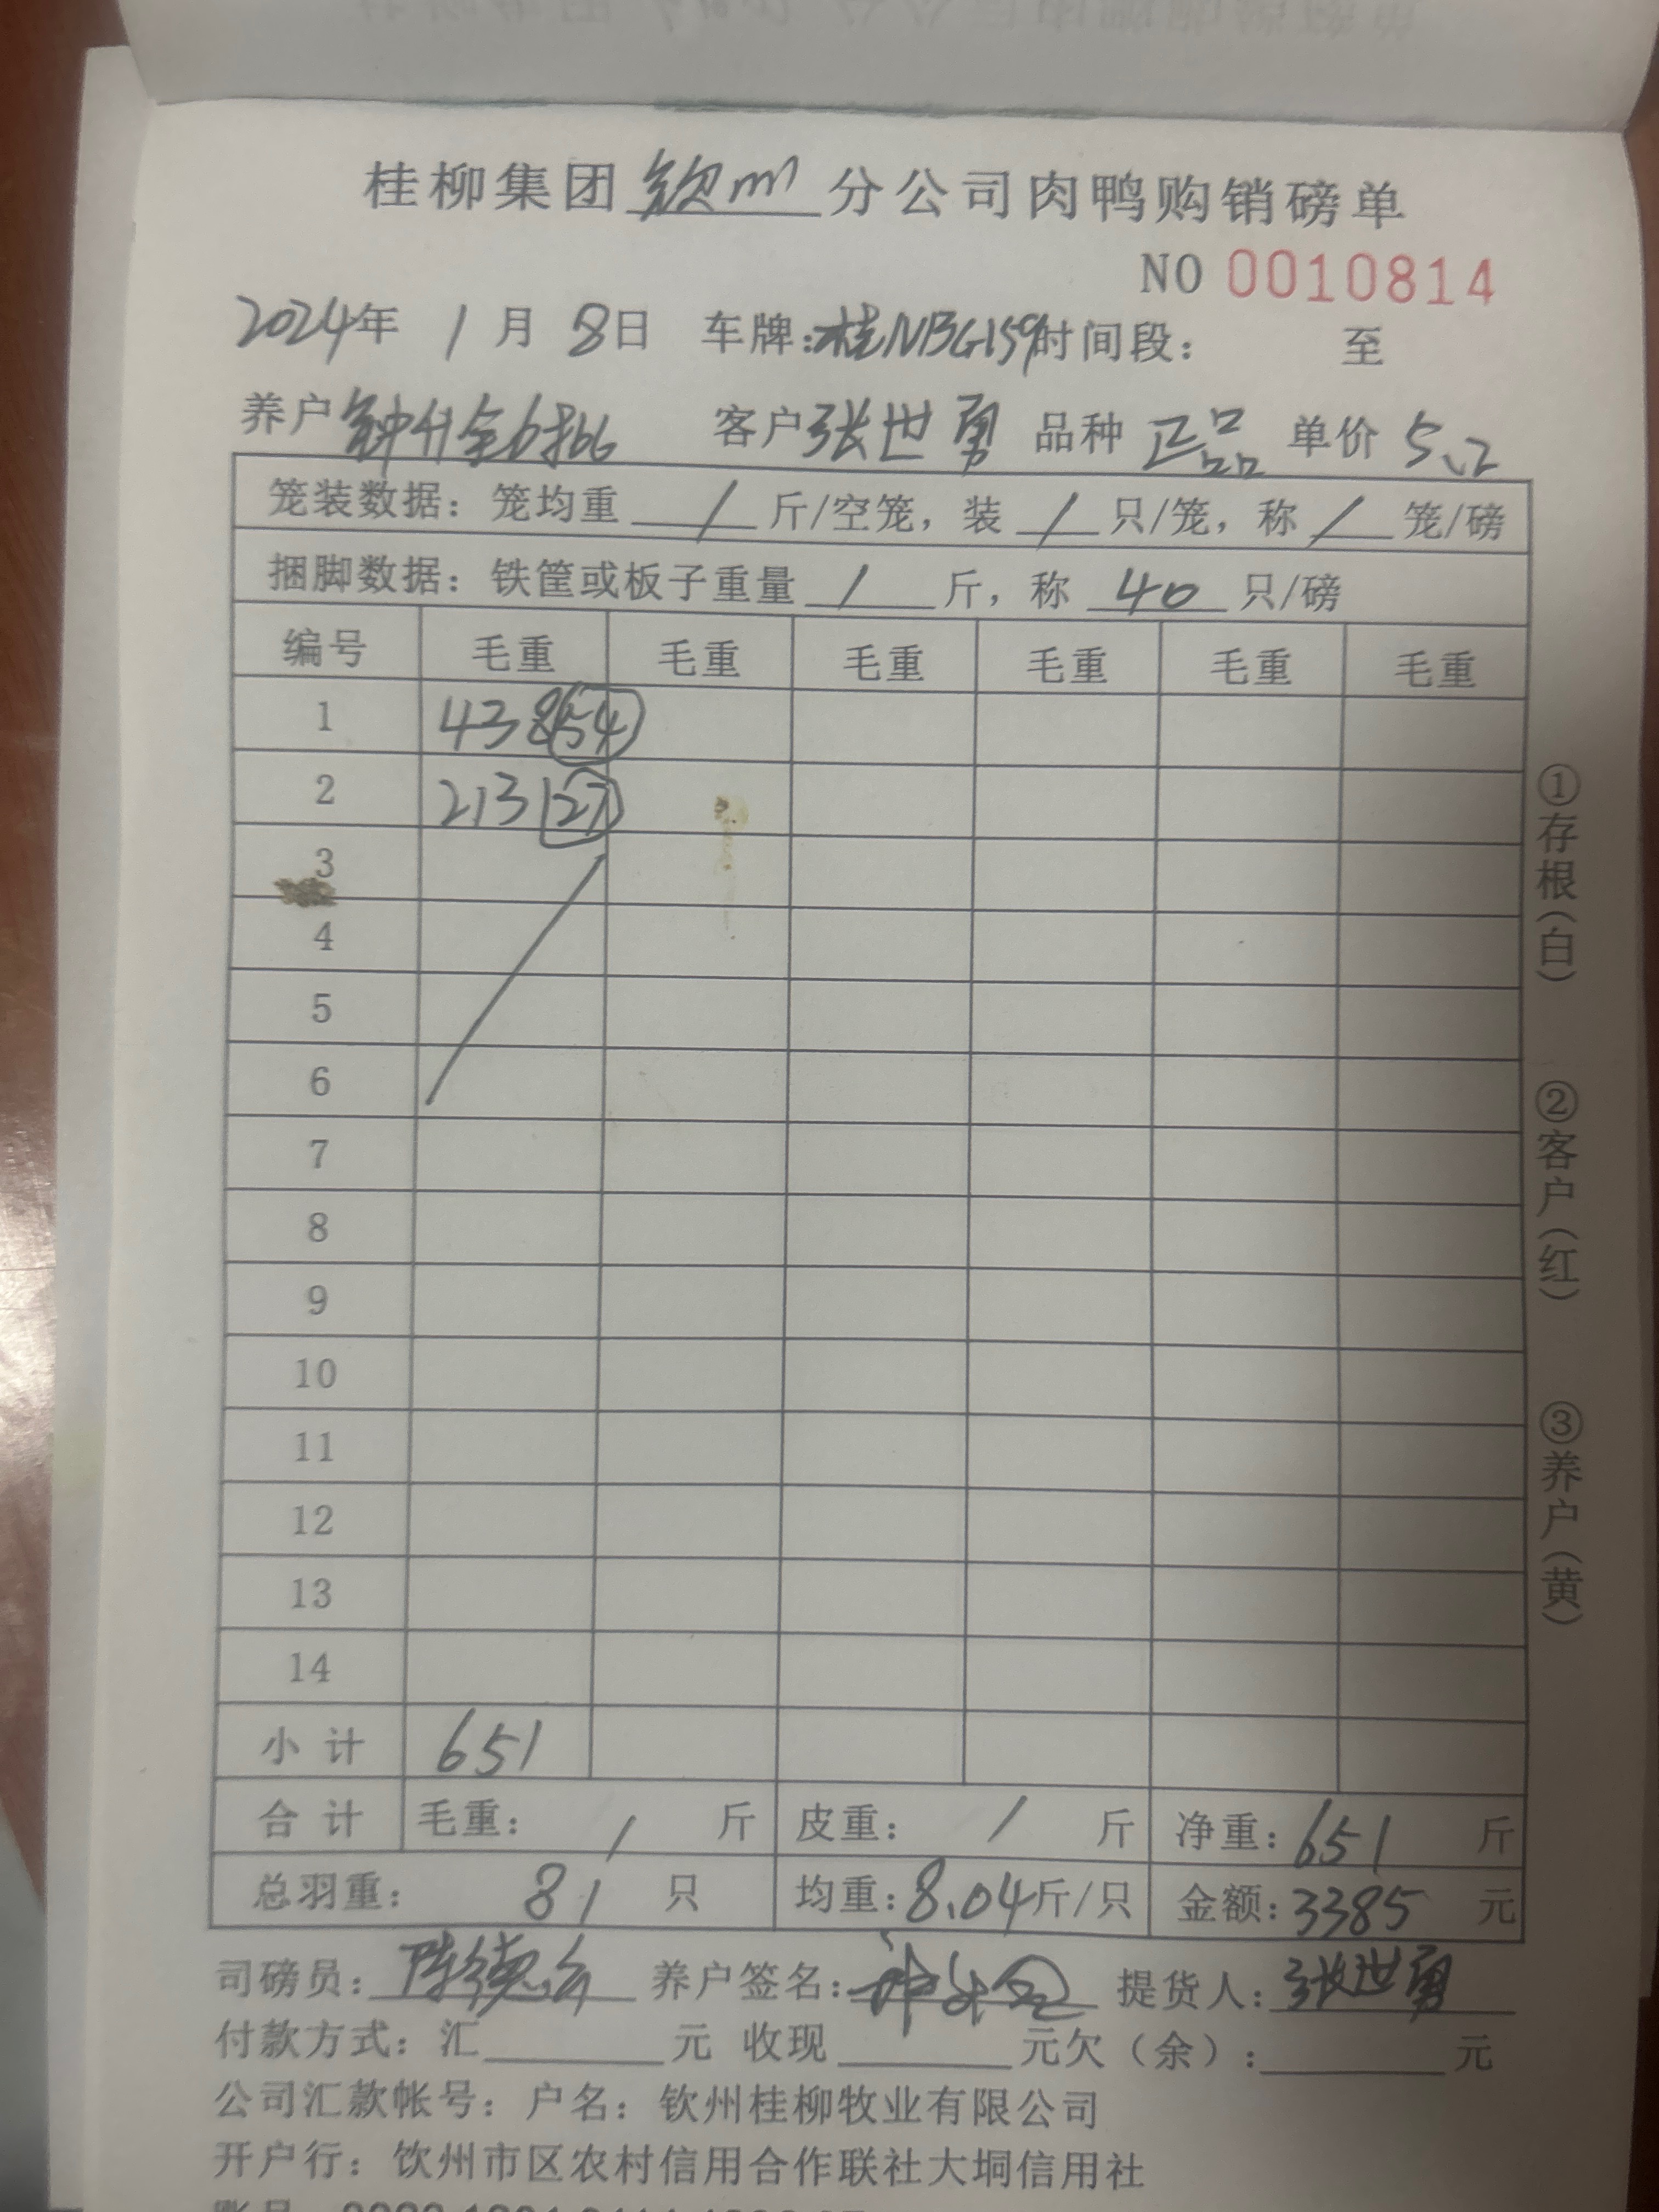 桂柳集团钦州分公司肉鸭购销磅单
NO 0010814
2024年 1月 8日 车牌:桂NBG159 时间段: 至
养户 钟升全6批 客户 张世勇 品种 正品 单价 5.2
笼装数据: 笼均重 / 斤/空笼, 装 / 只/笼, 称 / 笼/磅
捆脚数据: 铁筐或板子重量 / 斤, 称 40 只/磅
编号 毛重 毛重 毛重 毛重 毛重 毛重
1 438 54
2 213 27
3
4
5
6
7
8
9
10
11
12
13
14
小计 651
合计 毛重: / 斤 皮重: / 斤 净重: 651 斤
总羽重: 81 只 均重: 8.04斤/只 金额: 3385 元
司磅员: 养户签名: 提货人: 张世勇
付款方式: 汇 元 收现 元欠(余): 元
公司汇款帐号: 户名: 钦州桂柳牧业有限公司
开户行: 钦州市区农村信用合作联社大垌信用社
①存根(白)
②客户(红)
③养户(黄)